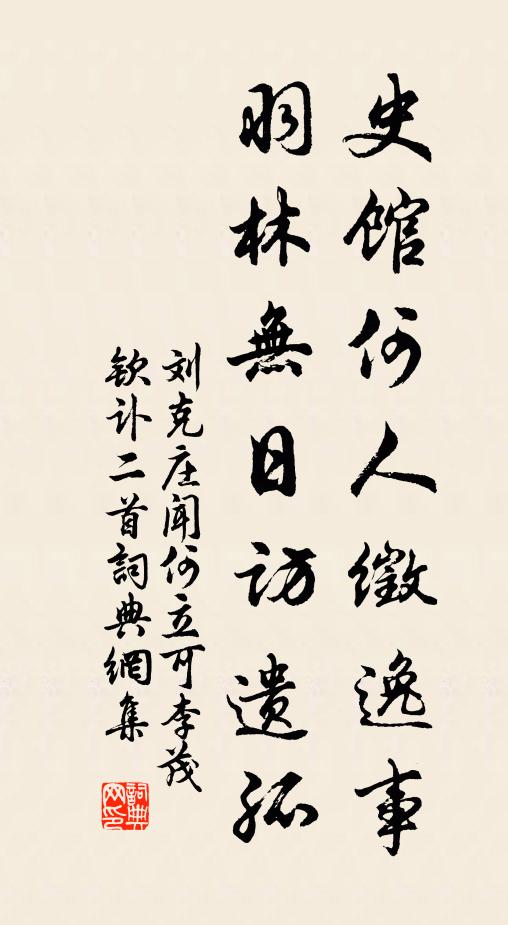 史館何人徵逸事
羽林無日訪遺孤
刘克庄闻何立可李茂
钦讣二首詞典網集
詞典
网印